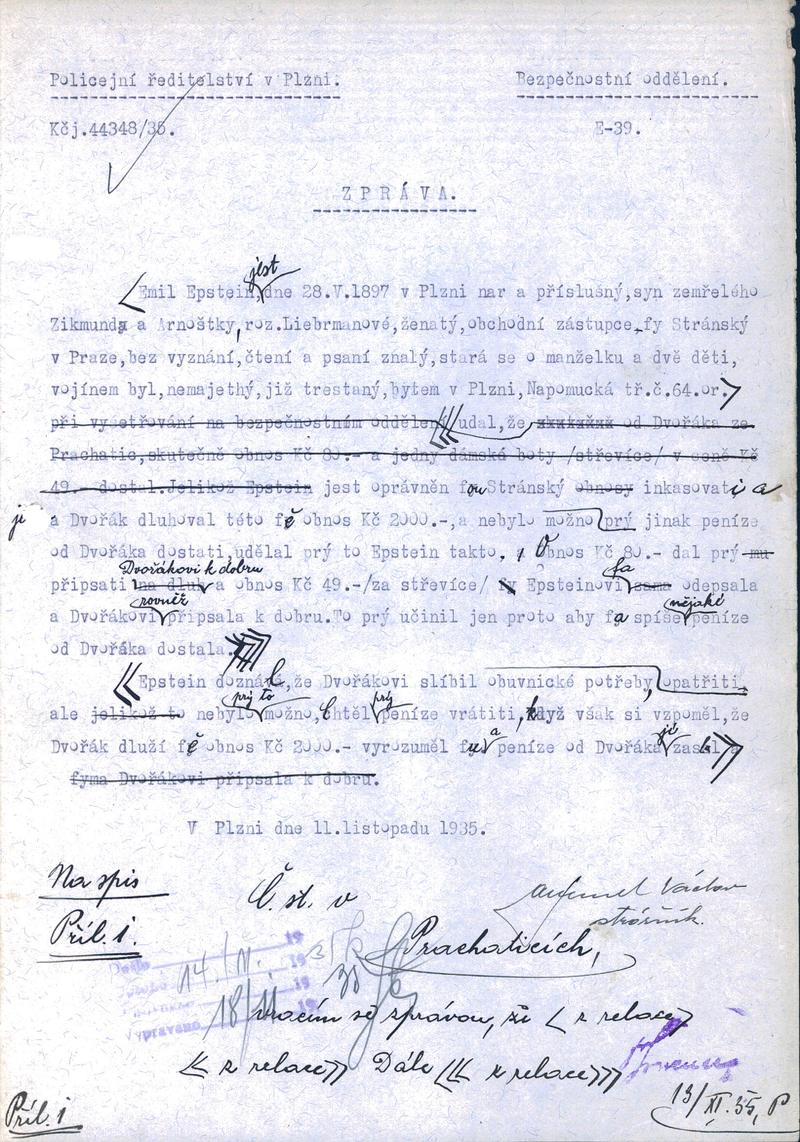 Policejní ředitelství v Plzni. Bezpečnostní oddělení.
Kčj.44348/35. E-39.
ZPRÁVA.
jest
Emil Epstein,dne 28.V.1897 v Plzni nar a příslušný,syn zemřelého
Zikmunda a Arnoštky,roz.Liebrmanové,ženatý,obchodní zástupce fy Stránský
v Praze,bez vyznání,čtení a psaní znalý,stará se o manželku a dvě děti,
vojínem byl,nemajethý,již trestaný,bytem v Plzni,Napomucká tř.č.64.or.
při vyšetřování na bezpečnostním oddělení udal,že od Dvořáka ze
Prachatic,skutečně obnos Kč 80.- a jedny dámské boty /střevíce/ v ceně Kč
49.- dostal.Jelikož Epstein jest oprávněn fou Stránský obnosy inkasovati a
ji
a Dvořák dluhoval této fě obnos Kč 2000.-,a nebylo možno prý jinak peníze
od Dvořáka dostati,udělal prý to Epstein takto, Obnos Kč 80.- dal prý mu
Dvořákovi k dobru fa
připsati na dluh a obnos Kč 49.-/za střevíce/ fy Epsteinovi sama odepsala
rovněž nějaké
a Dvořákovi připsala k dobru.To prý učinil jen proto aby fa spíše peníze
od Dvořáka dostala.
Epstein doznává,že Dvořákovi slíbil obuvnické potřeby,opatřiti,
prý to prý
ale jelikož to nebylo možno,chtěl peníze vrátiti,když však si vzpoměl,že
a je
Dvořák dluží fě obnos Kč 2000.- vyrozuměl fu peníze od Dvořáka zaslal a
fyma Dvořákovi připsala k dobru.
V Plzni dne 11.listopadu 1935.
Na spis
Příl. 1.
Č. st. v
Václav
strážník.
Prachaticích,
Došlo 14./11. 19
18/11 19
Vypraveno
vracím se zprávou, že < z relace>
<< z relace>> Dále <<< z relace>>>
13/XI. 35, P
Příl. 1